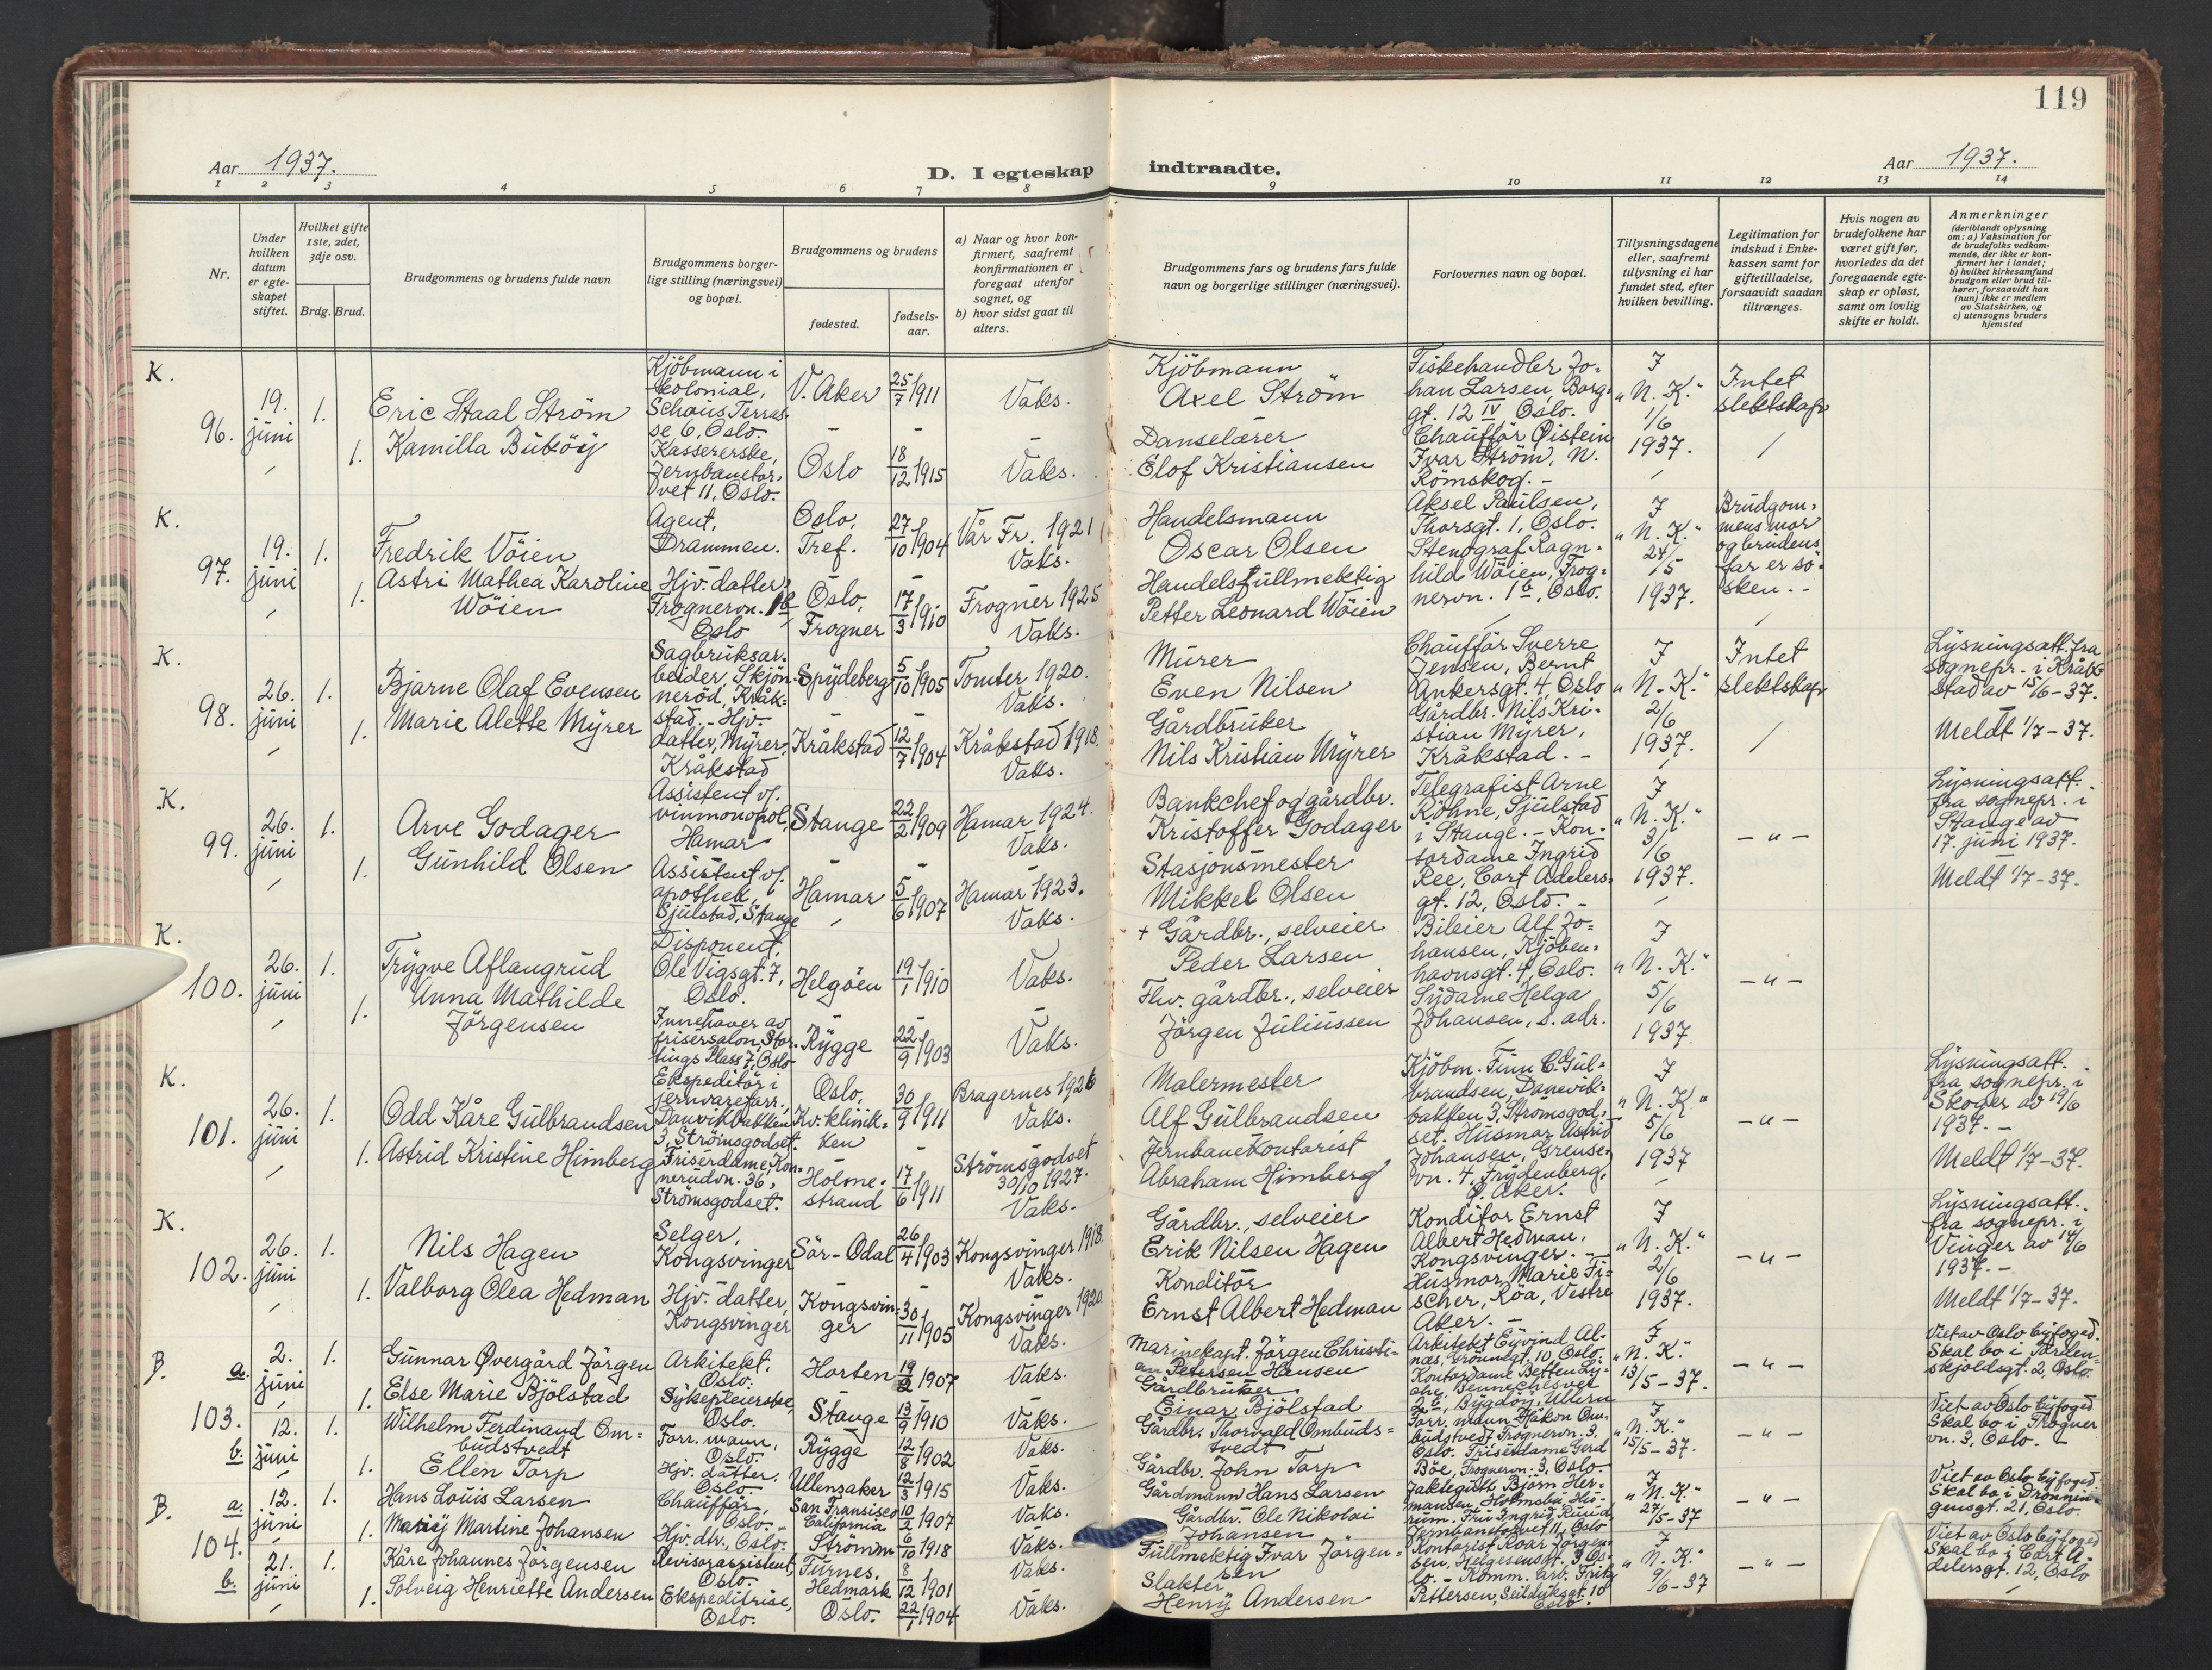 119
Aar 1937.
D. I egteskap indtraadte.
Aar 1937.
1 2 3 4 5 6 7 8 9 10 11 12 13 14
Nr.
Under hvilken datum er egteskapet stiftet.
Hvilket gifte 1ste, 2det, 3dje osv.
Brdg. Brud.
Brudgommens og brudens fulde navn
Brudgommens borgerlige stilling (næringsvei) og bopæl.
Brudgommens og brudens
fødested.
fødselsaar.
a) Naar og hvor konfirmert, saafremt konfirmationen er foregaat utenfor sognet, og
b) hvor sidst gaat til alters.
Brudgommens fars og brudens fars fulde navn og borgerlige stillinger (næringsvei).
Forlovernes navn og bopæl.
Tillysningsdagene eller, saafremt tillysning ei har fundet sted, efter hvilken bevilling.
Legitimation for indskud i Enkekassen samt for giftetilladelse, forsaavidt saadan tiltrænges.
Hvis nogen av brudefolkene har været gift før, hvorledes da det foregaaende egteskap er opløst, samt om lovlig skifte er holdt.
Anmerkninger (deriblandt oplysning om: a) Vaksination for de brudefolks vedkommende, der ikke er konfirmert her i landet; b) hvilket kirkesamfund brudgom eller brud tilhører, forsaavidt han (hun) ikke er medlem av Statskirken, og c) utensogns bruders hjemsted
K.
96. 19. juni
1. Eric Staal Ström
Kjöbmann i kolonial, Schous Terrasse 6, Oslo.
V. Aker 25/7 1911 Vaks.
Kjöbmann Axel Ström
Fiskehandler Johan Larsen, Borggt. 12 IV Oslo.
1. Kamilla Buböy
Kassererske, Jernbanetorvet 11, Oslo.
Oslo 18/12 1915 Vaks.
Danselærer Elof Kristiansen
Chaufför Øistein Ivar Ström, N. Römskog. -
I "N. K." 1/6 1937.
Intet slektskap
K.
97. 19. juni
1. Fredrik Vöien
Agent, Drammen.
Oslo, Tref. 27/10 1904 Vår Fr. 1921 Vaks.
Handelsmann Oscar Olsen
Aksel Paulsen, Thorsgt. 1, Oslo.
1. Astri Mathea Karoline Wöien
Hjv. datter, Frognervn. 1b Oslo
Oslo, Frogner 17/3 1910 Frogner 1925 Vaks.
Handelsfullmektig Petter Leonard Wöien
Stenograf Ragnhild Wöien, Frognervn. 1b, Oslo.
I "N. K." 24/5 1937.
Brudgommens mor og brudens far er søsken. -
K.
98. 26. juni
1. Bjarne Olaf Evensen
Sagbruksarbeider, Skjönneröd, Kråkstad. -
Spydeberg 5/10 1905 Tomter 1920. Vaks.
Murer Even Nilsen
Chaufför Sverre Jensen, Bernt Ankersgt. 4, Oslo
1. Marie Alette Myrer
Hjv. datter, Myrer, Kråkstad
Kråkstad 12/7 1904 Kråkstad 1918. Vaks.
Gårdbruker Nils Kristian Myrer
Gårdbr. Nils Kristian Myrer, Kråkstad. -
I "N. K." 2/6 1937.
Intet slektskap
Lysningsatt. fra sognepr. i Kråkstad av 15/6-37.
Meldt 1/7-37.
K.
99. 26. juni
1. Arve Godager
Assistent v/. vinmonopol, Hamar
Stange 22/2 1909 Hamar 1924. Vaks.
Bankchef og gårdbr. Kristoffer Godager
Telegrafist Arne Köhne, Sjulstad i Stange. -
1. Gunhild Olsen
Assistent v/. apothek, Sjulstad, Stange
Hamar 5/6 1907 Hamar 1923. Vaks.
Stasjonsmester Mikkel Olsen
Kontordame Ingrid Ree, Cort Adelersgt. 12, Oslo. -
I "N. K." 3/6 1937.
- " -
Lysningsatt. fra sognepr. i Stange av 17. juni 1937.
Meldt 1/7-37.
K.
100. 26. juni
1. Trygve Aflangrud
Disponent, Ole Vigsgt. 7, Oslo.
Helgöen 19/1 1910 Vaks.
+ Gårdbr., selveier Peder Larsen
Bileier Alf Johansen, Kjöbenhavnsgt. 4, Oslo.
1. Anna Mathilde Jörgensen
Innehaver av frisersalon, Stortings Plass 7, Oslo
Rygge 22/9 1903 Vaks.
Fhv. gårdbr., selveier Jörgen Juliussen
Sydame Helga Johansen, s. adr.
I "N. K." 5/6 1937
- " -
K.
101. 26. juni
1. Odd Kåre Gulbrandsen
Ekspeditör i jernvareforr., Danvikbakken 3, Strömsgodset.
Oslo, Kv. klinikken 30/9 1911 Bragernes 1926 Vaks.
Malermester Alf Gulbrandsen
Kjöbm. Finn C. Gulbrandsen, Danevikbakken 3, Strömsgodset.
1. Astrid Kristine Himberg
Friserdame, Konnerudvn. 36, Strömsgodset.
Holmestrand 17/6 1911 Strömsgodset 30/10 1927. Vaks.
Jernbanekontorist Abraham Himberg
Husmor Astrid Johansen, Grensevn. 4, Frydenberg, Ø. Aker.
I "N. K." 5/6 1937
- " -
Lysningsatt. fra sognepr. i Skoger av 19/6 1937. -
Meldt 1/7-37.
K.
102. 26. juni
1. Nils Hagen
Selger, Kongsvinger
Sör-Odal 26/4 1903 Kongsvinger 1918. Vaks.
Gårdbr., selveier Erik Nilsen Hagen
Konditor Ernst Albert Hedman, Kongsvinger. -
1. Valborg Olea Hedman
Hjv. datter, Kongsvinger
Kongsvinger 30/11 1905 Kongsvinger 1920. Vaks.
Konditor Ernst Albert Hedman
Husmor Marie Fischer, Röa, Vestre Aker. -
I "N. K." 2/6 1937.
- " -
Lysningsatt. fra sognepr. i Vinger av 14/6 1937. -
Meldt 1/7-37.
B.
103.
a. 2. juni
1. Gunnar Øvergård Jörgen
Arkitekt. Oslo.
Horten 19/2 1907 Vaks.
Marinekapt. Jörgen Christian Petersen Hansen
Arkitekt Eyvind Alnæs, Grönnegt. 10, Oslo.
1. Else Marie Bjölstad
Sykepleierske, Oslo.
Stange 13/9 1910 Vaks.
Gårdbruker Einar Bjölstad
Kontordame Betten Bennechesvei Bygdöy, Ullern
I "N. K." 13/5-37.
- " -
Viet av Oslo byfoged. Skal bo i Tordenskjoldsgt. 2, Oslo.
b. 12. juni
1. Wilhelm Ferdinand Ombudstvedt
Forr. mann, Oslo.
Rygge 12/8 1902 Vaks.
Gårdbr. Thorvald Ombudstvedt
Forr. mann Håkon Ombudstvedt, Frognervn. 3, Oslo.
1. Ellen Torp
Hjv. datter, Oslo.
Ullensaker 12/3 1915 Vaks.
Gårdbr. John Torp
Friserdame Gerd Böe, Frognervn. 3, Oslo.
I "N. K." 15/5-37.
- " -
Viet av Oslo byfoged Skal bo i Frognervn. 3, Oslo. -
B.
104.
a. 12. juni
1. Hans Louis Larsen
Chaufför, Oslo. -
San Fransisco California 10/2 1907 Vaks.
Gårdmann Hans Larsen
Björn Hermansen, Holmsbu, Hurum.
1. Mary Martine Johansen
Hjv. dtr., Oslo.
Strömm 6/10 1918 Vaks.
Gårdbr. Ole Nikolai Johansen
Fru Ingrid Ruud, Jernbanetorvet 11, Oslo
I "N. K." 27/5-37
- " -
Viet av Oslo byfoged. Skal bo i Dronningensgt. 21, Oslo.
b. 21. juni
1. Kåre Johannes Jörgensen
Revisorassistent, Oslo.
Furnes, Hedmark 8/12 1901 Vaks.
Fullmektig Ivar Jörgensen
Kontorist Roar Jörgensen, Helgesensgt. 3, Oslo. -
1. Solveig Henriette Andersen
Ekspeditrise, Oslo.
Oslo. 22/1 1904 Vaks.
Slakter Henry Andersen
Komm. arb. Fritz Pettersen, Seilduksgt. 10 Oslo.
I "N. K." 9/6-37
- " -
Viet av Oslo byfoged Skal bo i Cort Adelersgt. 12, Oslo